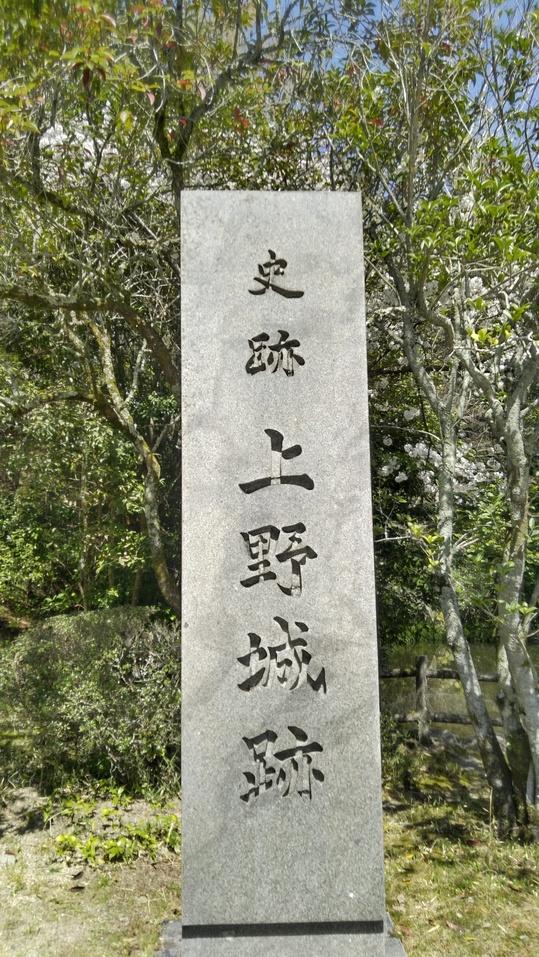 史跡上野城跡